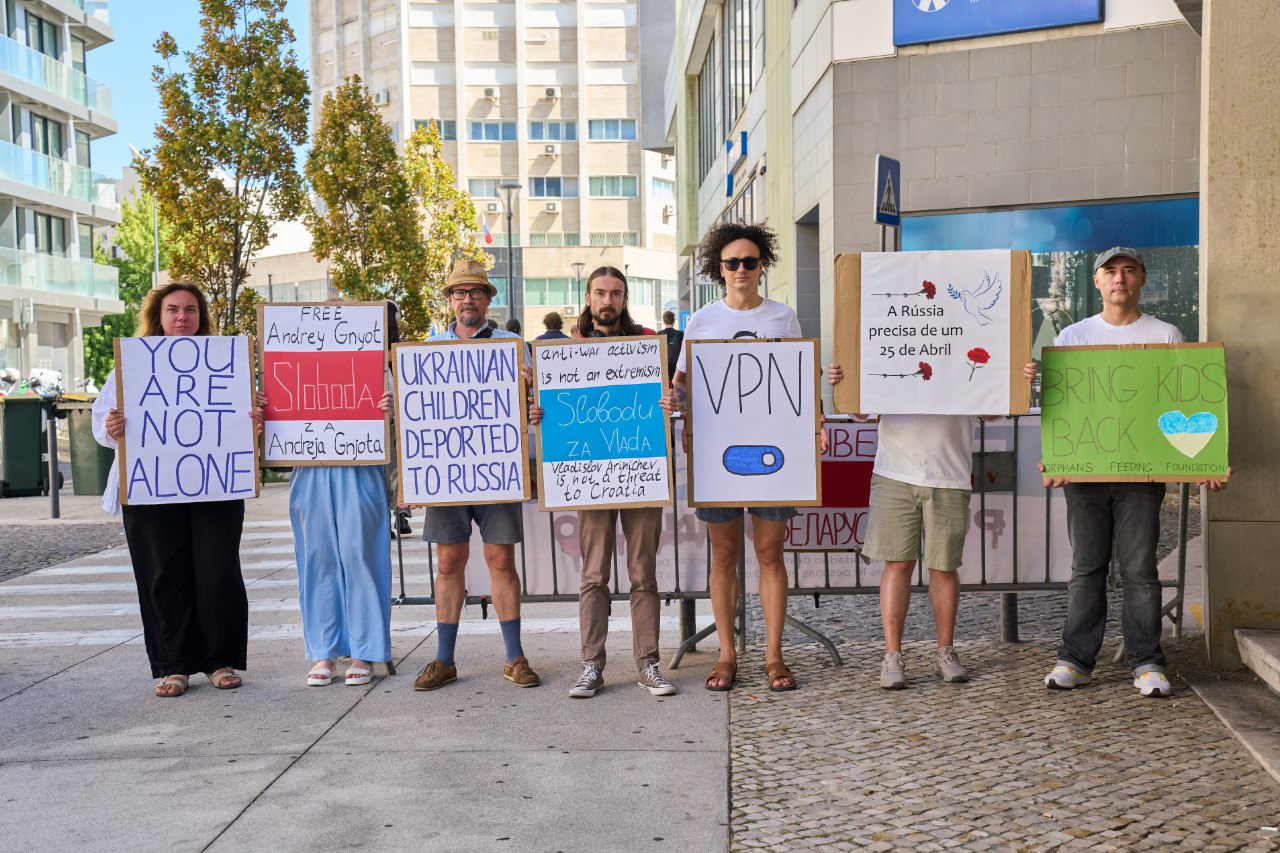 YOU
ARE
NOT
ALONE
FREE
Andrey Gnyot
Sloboda
ZA
Andreja Gnjota
UKRAINIAN
CHILDREN
DEPORTED
TO RUSSIA
anti-war activism
is not an extremism
Slobodu
za Vlada
Vladislav Arinichev
is not a threat
to Croatia
VPN
A Rússia
precisa de um
25 de Abril
BRING KIDS
BACK
ORPHANS FEEDING FOUNDATION
БЕЛАРУС